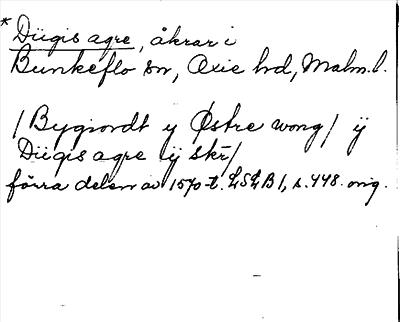 * Diigis agre, åkrar i
Bunkeflo sn, Oxie hd, Malm. l.
/Bygiordt y Østre wong/ ÿ
Diigis agre ÿ skr/
förra delen av 1570-t. LSLB 1, s. 448. orig.